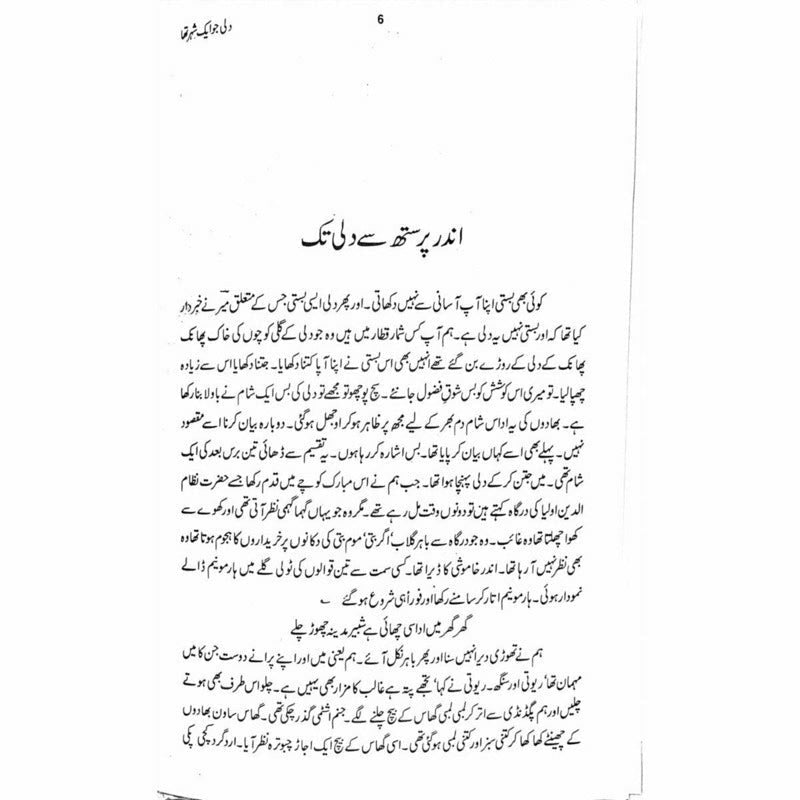 6
دلی جو ایک شہر تھا
اندر پرستھ سے دلی تک
کوئی بھی بستی اپنا آپ آسانی سے نہیں دکھاتی۔ اور پھر دلی ایسی بستی جس کے متعلق میر نے خبردار
کیا تھا کہ اور بستی نہیں یہ دلی ہے۔ ہم آپ کس شمار قطار میں ہیں وہ جو دلی کے گلی کوچوں کی خاک پھانک
پھانک کے دلی کے روڑے بن گئے تھے انہیں بھی اس بستی نے اپنا آپا کتنا دکھایا۔ جتنا دکھایا اس سے زیادہ
چھپا لیا۔ تو میری اس کوشش کو بس شوق فضول جانئے۔ سچ پوچھو تو مجھے تو دلی کی بس ایک شام نے باولا بنا رکھا
ہے۔ بھادوں کی یہ اداس شام دم بھر کے لیے مجھ پر ظاہر ہو کر اوجھل ہو گئی۔ دوبارہ بیان کرنا اسے مقصود
نہیں۔ پہلے بھی اسے کہاں بیان کر پایا تھا۔ بس اشارہ کر رہا ہوں۔ یہ تقسیم سے ڈھائی تین برس بعد کی ایک
شام تھی۔ میں جتن کر کے دلی پہنچا ہوا تھا۔ جب ہم نے اس مبارک کوچے میں قدم رکھا جسے حضرت نظام
الدین اولیا کی درگاہ کہتے ہیں تو دونوں وقت مل رہے تھے۔ مگر وہ جو یہاں گہما گہمی نظر آتی تھی اور کھوے سے
کھوا چھلتا تھا وہ غائب۔ وہ جو درگاہ سے باہر گلاب‘ اگر بتی‘ موم بتی کی دکانوں پر خریداروں کا ہجوم ہوتا تھا وہ
بھی نظر نہیں آ رہا تھا۔ اندر خاموشی کا ڈیرا تھا۔ کسی سمت سے تین قوالوں کی ٹولی گلے میں ہارمونیم ڈالے
نمودار ہوئی۔ ہارمونیم اتار کر سامنے رکھا اور فوراً ہی شروع ہو گئے
گھر گھر میں اداسی چھائی ہے شبیر مدینہ چھوڑ چلے
ہم نے تھوڑی دیر انہیں سنا اور پھر باہر نکل آئے۔ ہم یعنی میں اور اپنے پرانے دوست جن کا میں
مہمان تھا‘ ریوتی اور سنگھ۔ ریوتی نے کہا‘ تجھے پتہ ہے غالب کا مزار بھی یہیں ہے۔ چلو اس طرف بھی ہوتے
چلیں اور ہم پگڈنڈی سے اتر کر لمبی لمبی گھاس کے بیچ چلنے لگے۔ جنم اشٹمی گذر چکی تھی۔ گھاس ساون بھادوں
کے چھینٹے کھا کھا کر کتنی سبز اور کتنی لمبی ہو گئی تھی۔ اسی گھاس کے بیچ ایک اجاڑ چبوترہ نظر آیا۔ ارد گرد کچی پکی